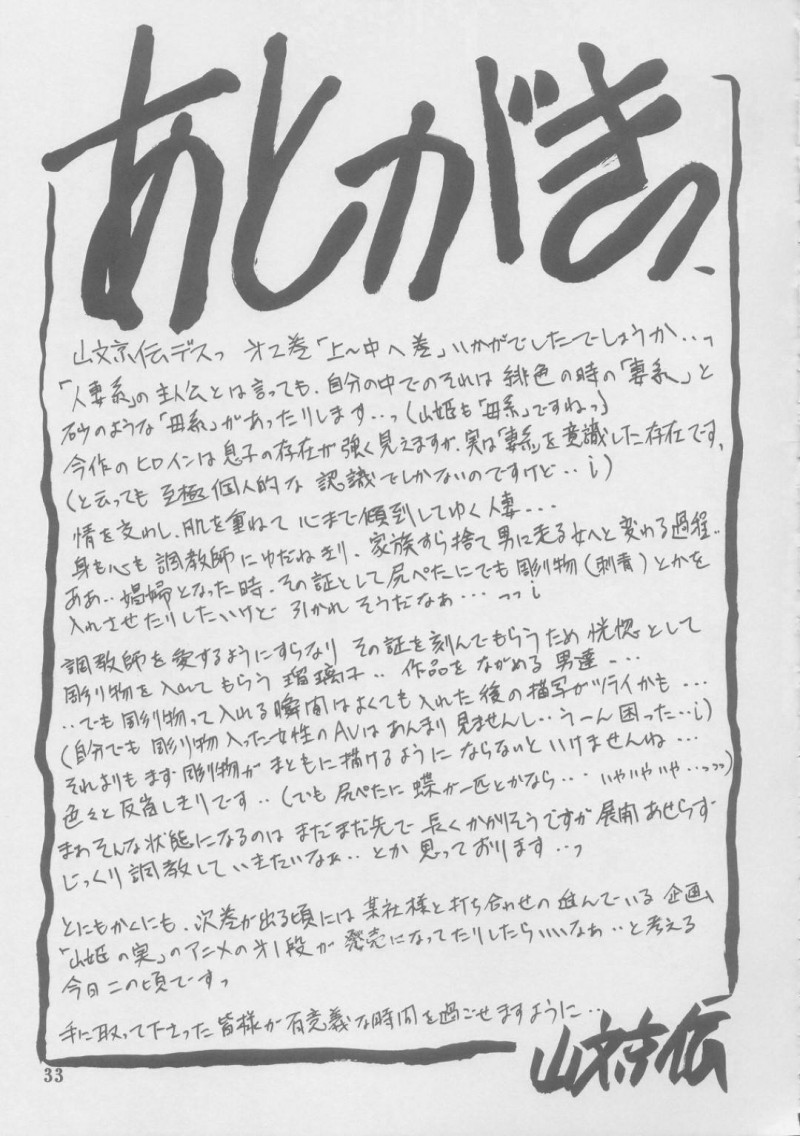 あとがきっ、
山文京伝デスっ 才2巻「上〜中へ巻」いかがでしたでしょうか‥っ
「人妻系」の主人公とは言っても、自分の中でのそれは緋色の時の「妻系」と
砂のような「母系」があったりします…っ(山姫も「母系」ですねっ)
今作のヒロインは息子の存在が強く見えますが、実は「妻系」を意識した存在です、
(と云っても至極個人的な認識でしかないのですけど‥i)
情を交わし、肌を重ねて心まで傾倒してゆく人妻...
身も心も調教師にゆだねきり、家族すら捨て男に走る女へと変わる過程..
ああ..娼婦となった時、その証として尻ぺたにでも彫り物(刺青)とかを
入れさせたりしたいけど引かれそうだなぁ...っっi
調教師を愛するようにすらなりその証を刻んでもらうため恍惚として
彫り物を入れてもらう瑠璃子..作品をながめる男達...
..でも彫り物って入れる瞬間はよくても入れた後の描写がツライかも...
(自分でも彫り物入った女性のAVはあんまり見ませんし..うーん困った..i)
それよりもまず彫り物がまともに描けるようにならないといけませんね...
色々と反省しきりです..(でも尻ぺたに蝶が一匹とかなら...いやいやいや..っっっ)
まぁそんな状態になるのはまだまだ先で長くかかりそうですが展開あせらず
じっくり調教していきたいなぁ..とか思っております..っ
とにもかくにも、次巻が出る頃には某社様と打ち合わせの進んでいる企画、
「山姫の実」のアニメの才1段が発売になってたりしたらいいなぁ..と考える
今日この頃ですっ
手に取って下さった皆様が有意義な時間を過ごせますように..
山文京伝
33